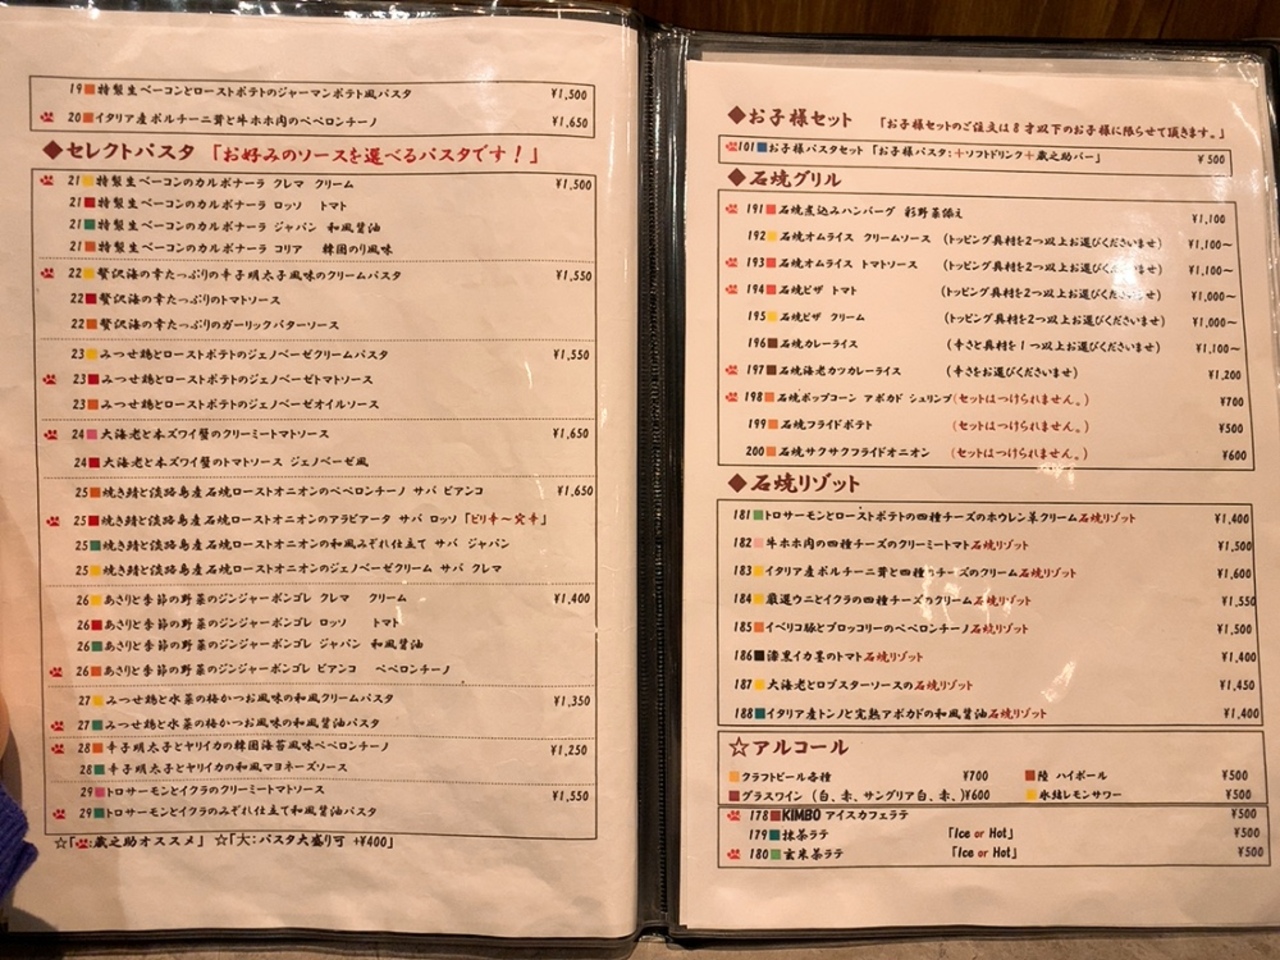 19 特製生ベーコンとローストポテトのジャーマンポテト風パスタ ¥1,500
20 イタリア産ポルチーニ茸と牛ホホ肉のペペロンチーノ ¥1,650
◆セレクトパスタ 「お好みのソースを選べるパスタです!」
21 特製生ベーコンのカルボナーラ クレマ クリーム ¥1,500
21 特製生ベーコンのカルボナーラ ロッソ トマト
21 特製生ベーコンのカルボナーラ ジャパン 和風醤油
21 特製生ベーコンのカルボナーラ コリア 韓国のり風味
22 贅沢海の幸たっぷりの辛子明太子風味のクリームパスタ ¥1,550
22 贅沢海の幸たっぷりのトマトソース
22 贅沢海の幸たっぷりのガーリックバターソース
23 みつせ鶏とローストポテトのジェノベーゼクリームパスタ ¥1,550
23 みつせ鶏とローストポテトのジェノベーゼトマトソース
23 みつせ鶏とローストポテトのジェノベーゼオイルソース
24 大海老と本ズワイ蟹のクリーミートマトソース ¥1,650
24 大海老と本ズワイ蟹のトマトソース ジェノベーゼ風
25 焼き鯖と淡路島産石焼ローストオニオンのペペロンチーノ サバ ビアンコ ¥1,650
25 焼き鯖と淡路島産石焼ローストオニオンのアラビアータ サバ ロッソ 「ピリ辛～穴辛」
25 焼き鯖と淡路島産石焼ローストオニオンの和風みぞれ仕立て サバ ジャパン
25 焼き鯖と淡路島産石焼ローストオニオンのジェノベーゼクリーム サバ クレマ
26 あさりと季節の野菜のジンジャーボンゴレ クレマ クリーム ¥1,400
26 あさりと季節の野菜のジンジャーボンゴレ ロッソ トマト
26 あさりと季節の野菜のジンジャーボンゴレ ジャパン 和風醤油
26 あさりと季節の野菜のジンジャーボンゴレ ビアンコ ペペロンチーノ
27 みつせ鶏と水菜の梅かつお風味の和風クリームパスタ ¥1,350
27 みつせ鶏と水菜の梅かつお風味の和風醤油パスタ
28 辛子明太子とヤリイカの韓国海苔風味ペペロンチーノ ¥1,250
28 辛子明太子とヤリイカの和風マヨネーズソース
29 トロサーモンとイクラのクリーミートマトソース ¥1,550
29 トロサーモンとイクラのみぞれ仕立て和風醤油パスタ
☆「:蔵之助オススメ」 ☆「大:パスタ大盛り可 +¥400」
◆お子様セット 「お子様セットのご注文は8才以下のお子様に限らせて頂きます。」
101 お子様パスタセット「お子様パスタ:+ソフトドリンク+蔵之助バー」 ¥500
◆石焼グリル
191 石焼煮込みハンバーグ 彩野菜添え ¥1,100
192 石焼オムライス クリームソース (トッピング具材を2つ以上お選びくださいませ) ¥1,100～
193 石焼オムライス トマトソース (トッピング具材を2つ以上お選びくださいませ) ¥1,100～
194 石焼ピザ トマト (トッピング具材を2つ以上お選びくださいませ) ¥1,000～
195 石焼ピザ クリーム (トッピング具材を2つ以上お選びくださいませ) ¥1,000～
196 石焼カレーライス (辛さと具材を1つ以上お選びくださいませ) ¥1,100～
197 石焼海老カツカレーライス (辛さをお選びくださいませ) ¥1,200
198 石焼ポップコーン アボカド シュリンプ(セットはつけられません。) ¥700
199 石焼フライドポテト (セットはつけられません。) ¥500
200 石焼サクサクフライドオニオン (セットはつけられません。) ¥600
◆石焼リゾット
181 トロサーモンとローストポテトの四種チーズのホウレン草クリーム石焼リゾット ¥1,400
182 牛ホホ肉の四種チーズのクリーミートマト石焼リゾット ¥1,500
183 イタリア産ポルチーニ茸と四種チーズのクリーム石焼リゾット ¥1,600
184 厳選ウニとイクラの四種チーズのクリーム石焼リゾット ¥1,550
185 イベリコ豚とブロッコリーのペペロンチーノ石焼リゾット ¥1,500
186 漆黒イカ墨のトマト石焼リゾット ¥1,400
187 大海老とロブスターソースの石焼リゾット ¥1,450
188 イタリア産トンノと完熟アボカドの和風醤油石焼リゾット ¥1,400
☆アルコール
クラフトビール各種 ¥700 陸 ハイボール ¥500
グラスワイン (白、赤、サングリア白、赤、)¥600 氷結レモンサワー ¥500
178 KIMBO アイスカフェラテ ¥500
179 抹茶ラテ 「Ice or Hot」 ¥500
180 玄米茶ラテ 「Ice or Hot」 ¥500